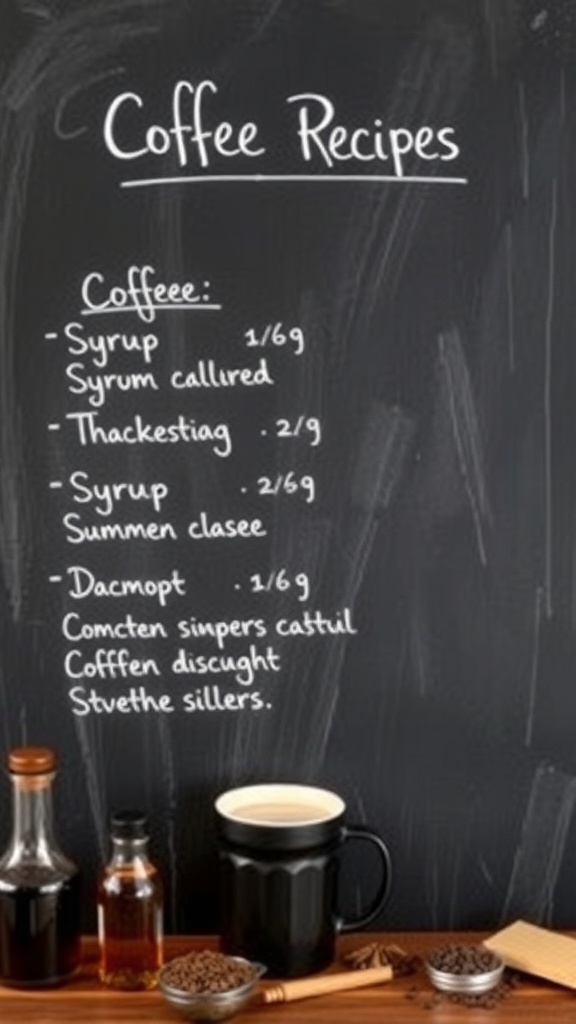 Coffee Recipes
Coffeee:
- Syrup 1/6g
Syrum callired
- Thackestiag . 2/g
- Syrup . 2/6g
Summen clasee
- Dacmopt . 1/6g
Comcten simpers casttul
Cofffen discught
Stvethe sillers.